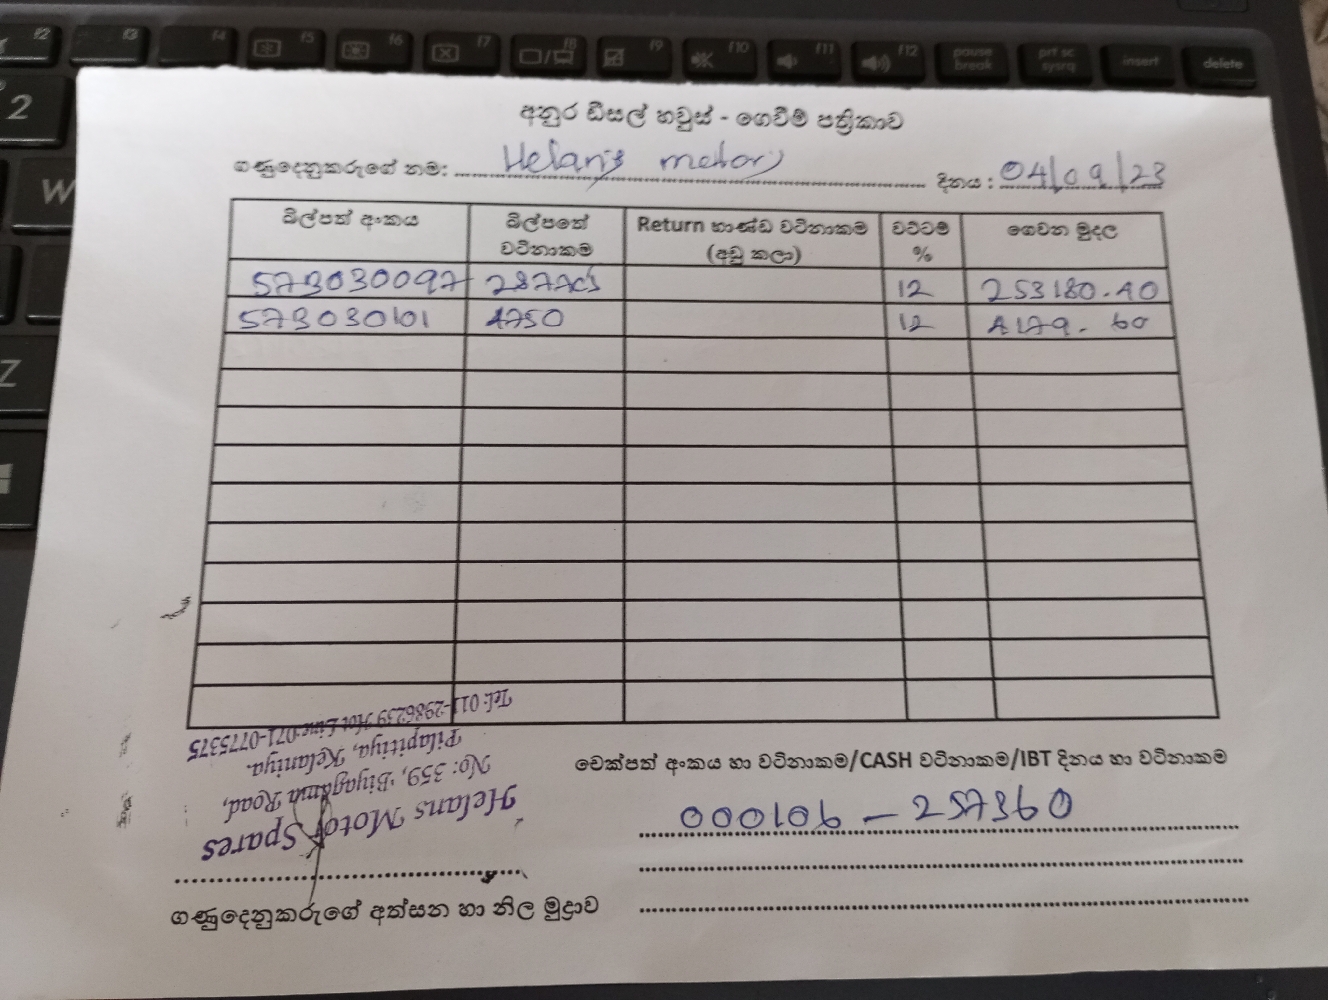 f2 f3 f4 f5 f6 f7 f8 f9 f10 f11 f12 pause break prt sc sysrq insert delete
2
W
Z
අනුර ඩීසල් හවුස් - ගෙවීම් පත්‍රිකාව
ගණුදෙනුකරුගේ නම: Helans motors දිනය : 04/09/23
බිල්පත් අංකය බිල්පතේ වටිනාකම Return භාණ්ඩ වටිනාකම (අඩු කලා) වට්ටම් % ගෙවන මුදල
573030097 287705 12 253180.40
573030101 4750 12 4179.60
චෙක්පත් අංකය හා වටිනාකම/CASH වටිනාකම/IBT දිනය හා වටිනාකම
000106 - 257360
Helans Motor Spares
No: 359, Biyagama Road,
Pilapitiya, Kelaniya.
Tel: 011-2986239 Hot Line:071-0775375
ගණුදෙනුකරුගේ අත්සන හා නිල මුද්‍රාව